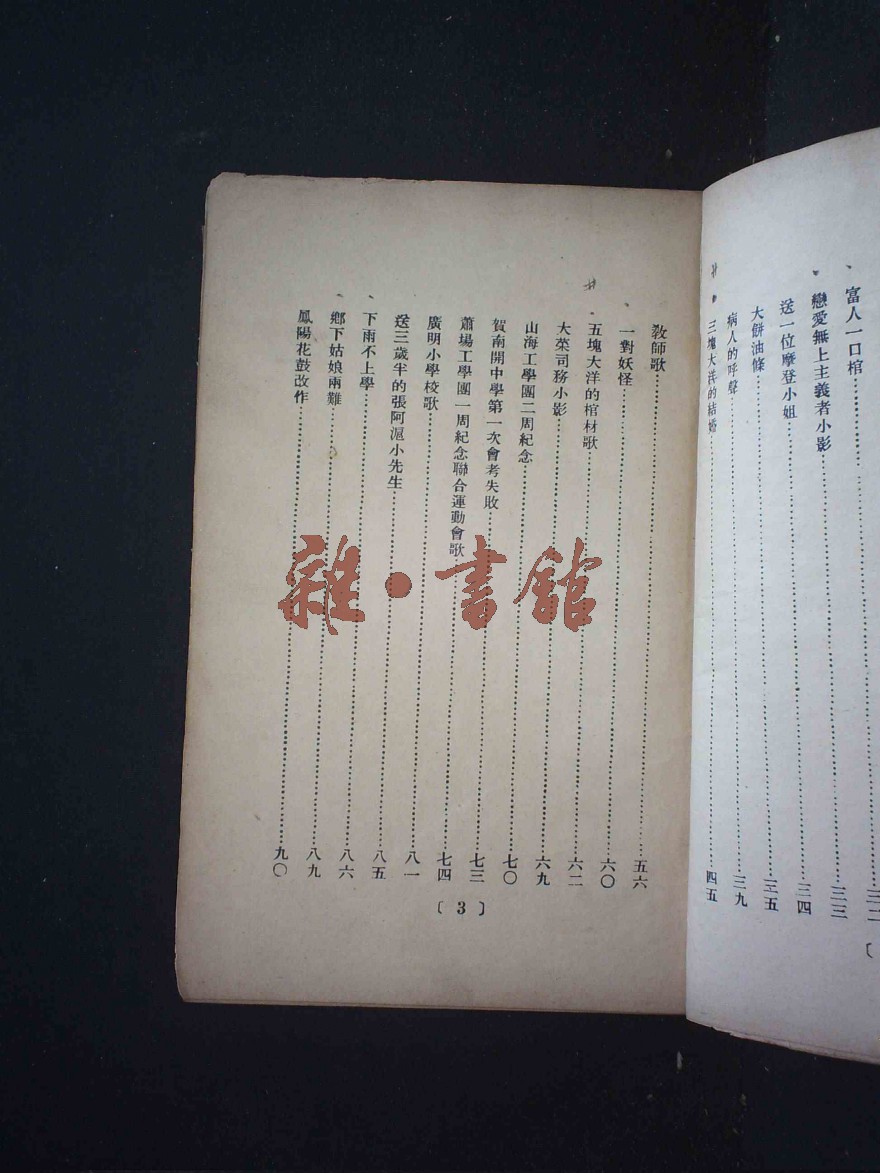 富人一口棺……三二
戀愛無上主義者小影……三三
送一位摩登小姐……三四
大餅油條……三五
病人的呼聲……三九
三塊大洋的結婚……四五
教師歌……五六
一對妖怪……六〇
五塊大洋的棺材歌……六二
大菜司務小影……六九
山海工學團二周紀念……七〇
賀南開中學第一次會考失敗……七三
蕭場工學團一周紀念聯合運動會歌……七四
廣明小學校歌……八一
送三歲半的張阿滬小先生……八五
下雨不上學……八六
鄉下姑娘兩難……八九
鳳陽花鼓改作……九〇
〔3〕
雜·書館